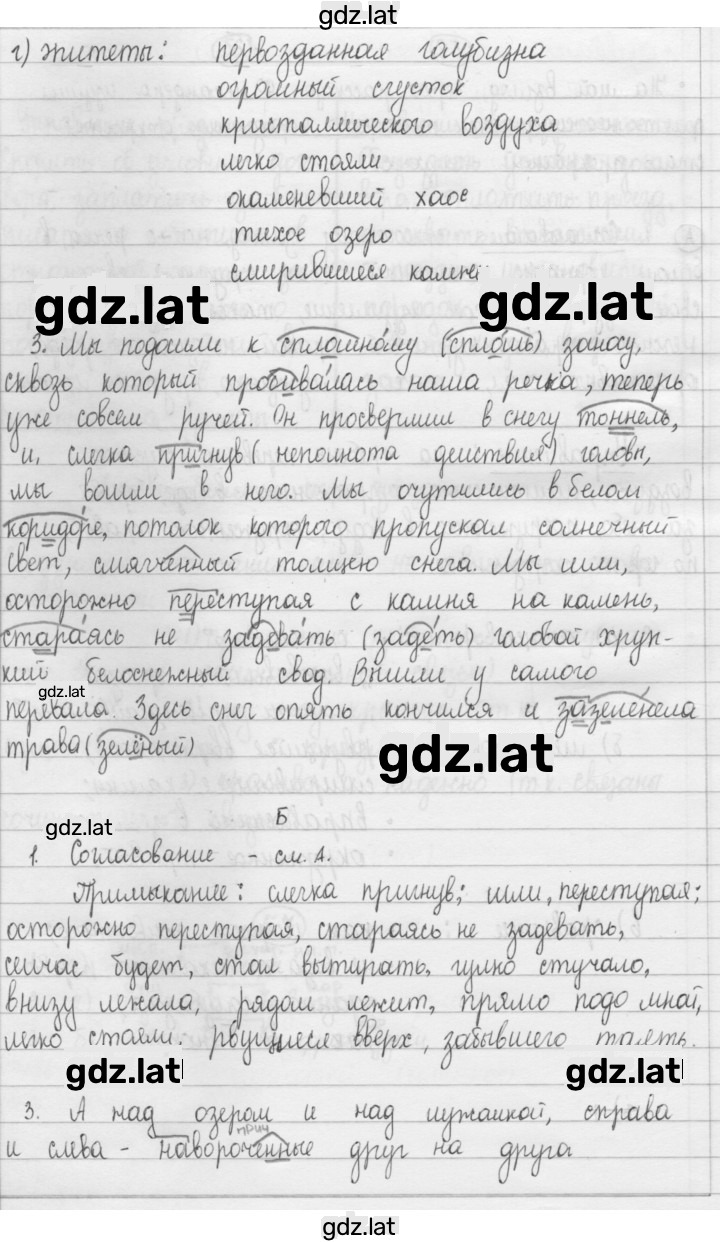 gdz.lat
г) Эпитеты: первозданная голубизна
огромный сгусток
кристаллического воздуха
легко стояли
окаменевший хаос
тихое озеро
смирившиеся камни
gdz.lat
gdz.lat
3. Мы подошли к сплошному (сплошь) заносу,
сквозь который пробивалась наша речка, теперь
уже совсем ручей. Он просверлил в снегу тоннель,
и, слегка пригнув (неполнота действия) головы,
мы вошли в него. Мы очутились в белом
коридоре, потолок которого пропускал солнечный
свет, смягчённый толщею снега. Мы шли,
осторожно переступая с камня на камень,
стараясь не задевать (задеть) головой хруп-
кий белоснежный свод. Вышли у самого
gdz.lat
перевала. Здесь снег опять кончился и зазеленела
трава (зелёный)
gdz.lat
Б
gdz.lat
1. Согласование - см. А.
Примыкание: слегка пригнув; шли, переступая;
осторожно переступая, стараясь не задевать,
сейчас будет, стал вытирать, гулко стучало,
внизу лежала, рядом лежит, прямо подо мной,
легко стояли. рвущиеся вверх, забывшего таять.
gdz.lat
gdz.lat
3. А над озером и над лужайкой, справа
прич
и слева - навороченные друг на друга
gdz.lat